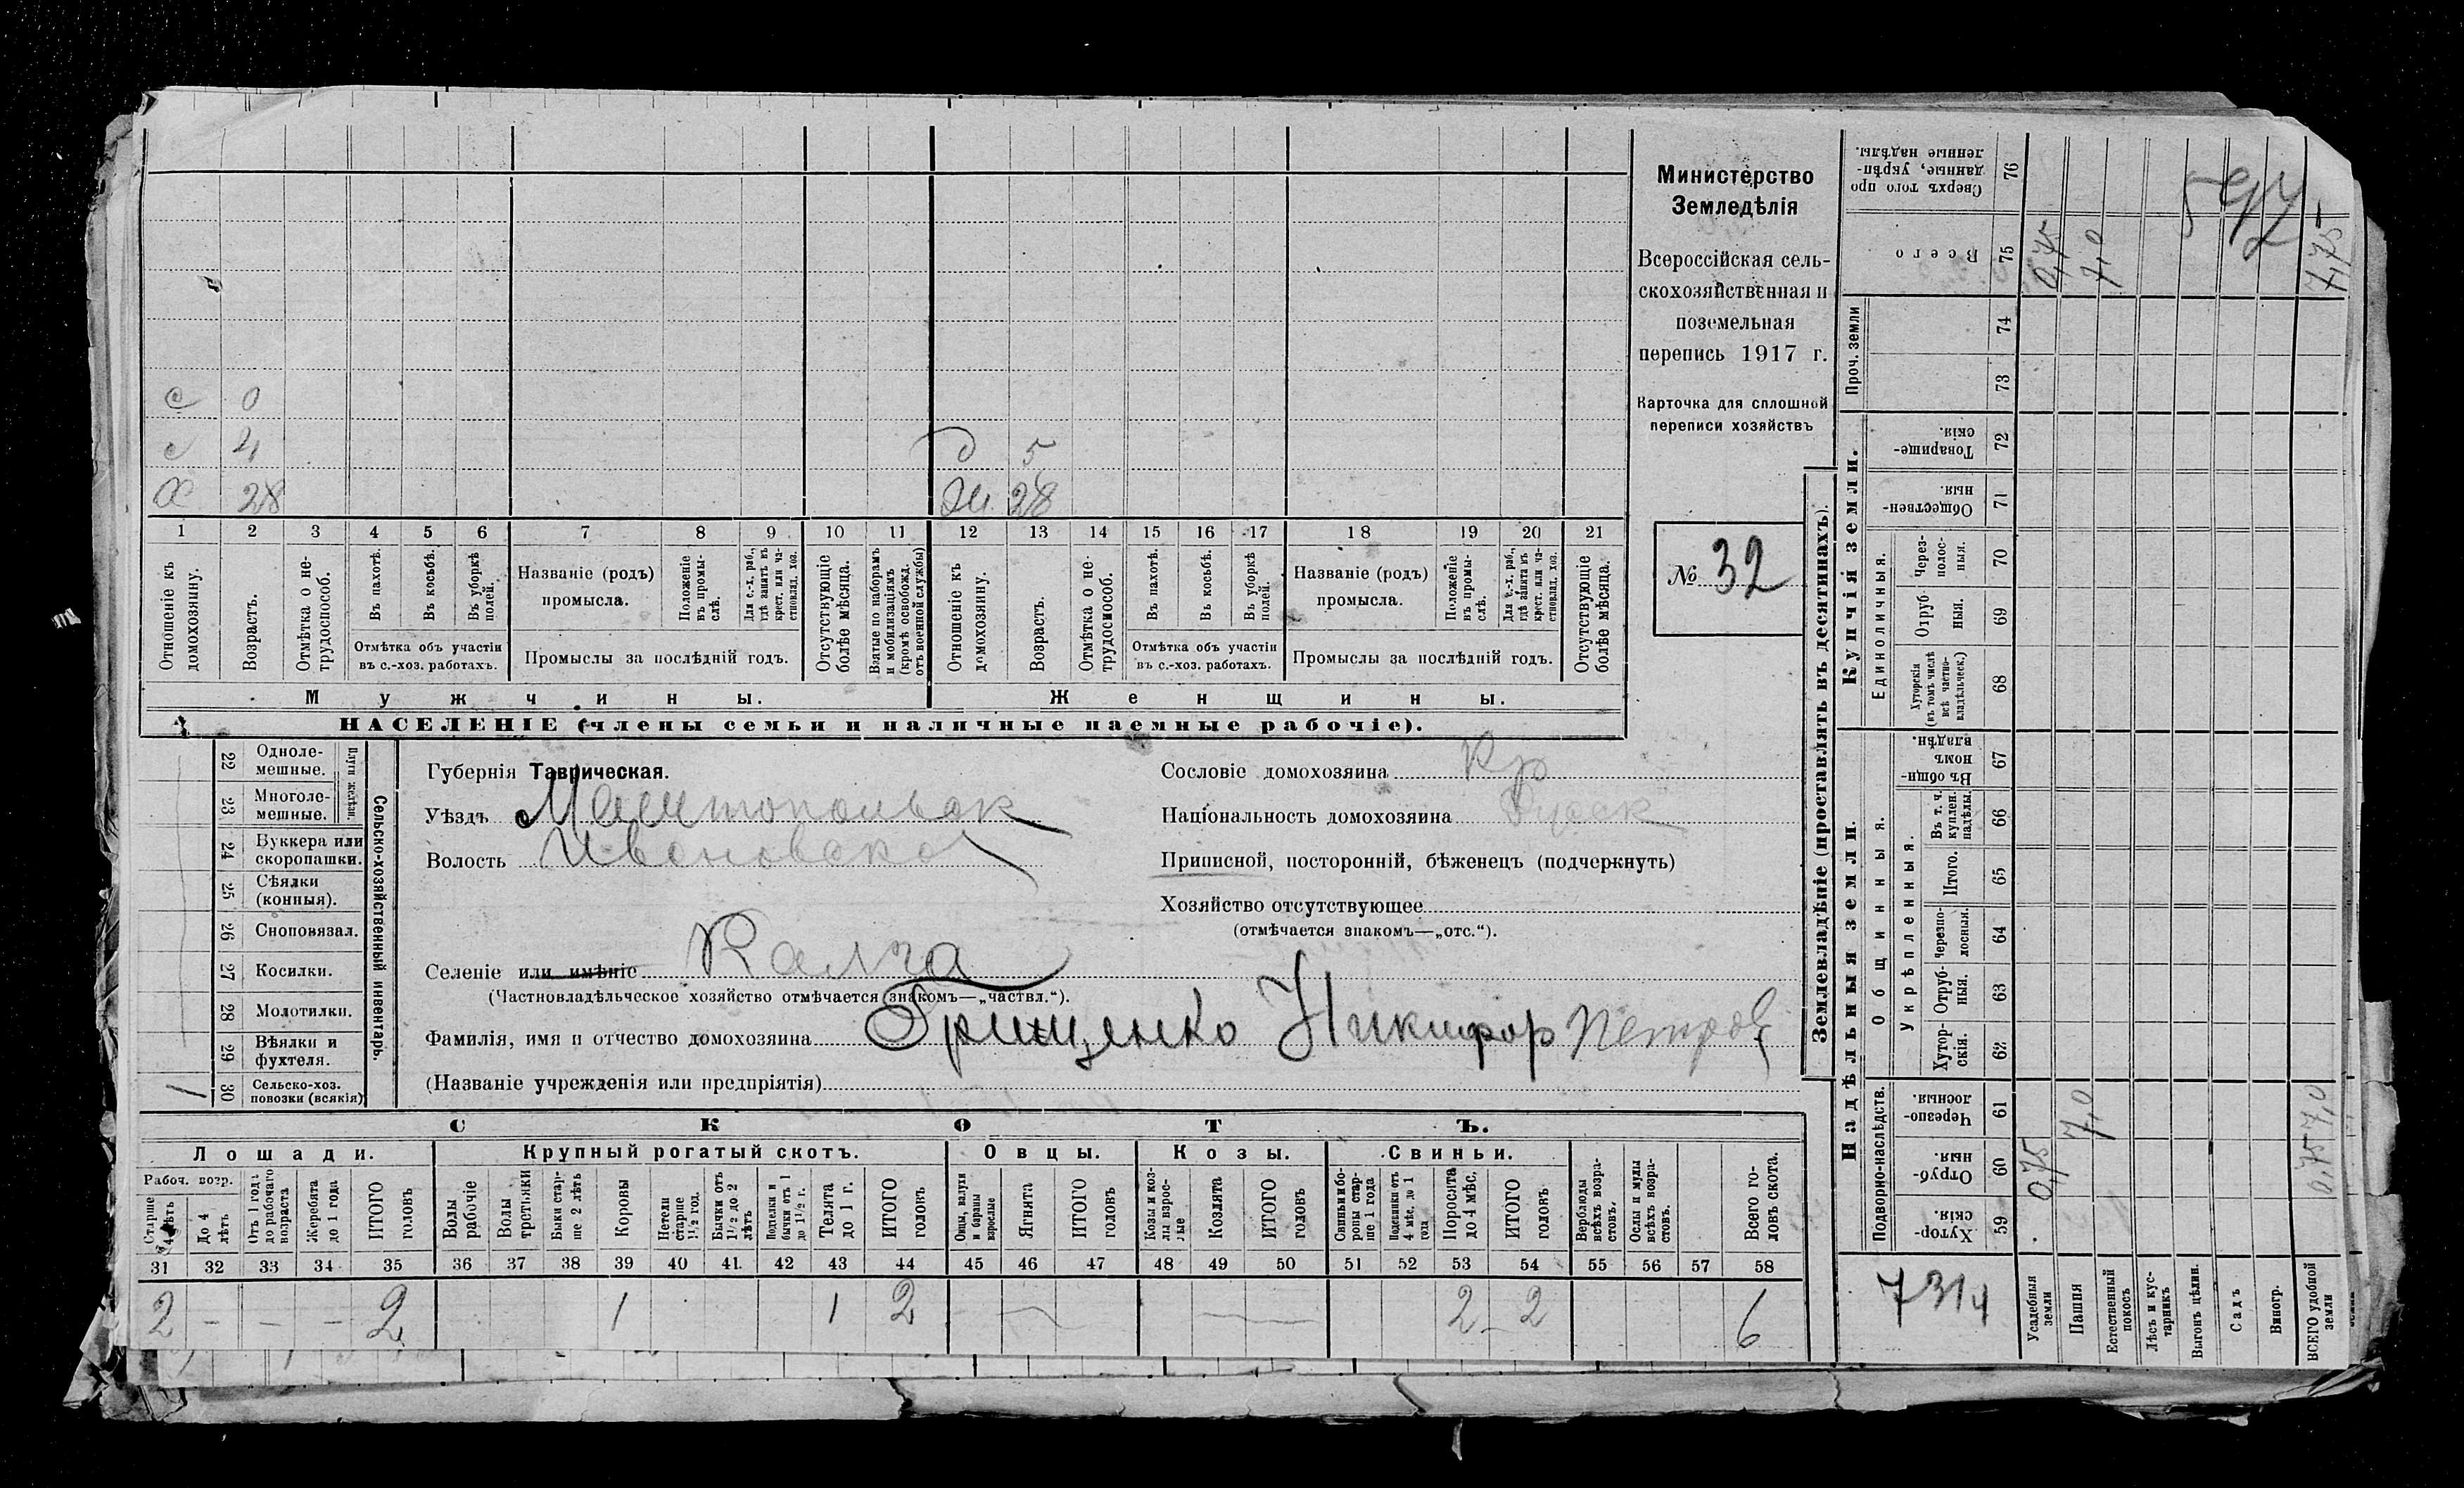 с 0
с 4 д 5
Х 28 Ж 28
1 2 3 4 5 6 7 8 9 10 11 12 13 14 15 16 17 18 19 20 21
Отношеніе къ домохозяину.
Возрастъ.
Отмѣтка о не-трудоспособ.
Въ пахотѣ.
Въ косьбѣ.
Въ уборкѣ полей.
Отмѣтка объ участіи
въ с.-хоз. работахъ.
Названіе (родъ)
промысла.
Положеніе въ промы-слѣ.
Для с.-х. раб., гдѣ занятъ въ крест. или ча-стновлад. хоз.
Промыслы за послѣдній годъ.
Отсутствующіе болѣе мѣсяца.
Взятые по наборамъ и мобилизаціямъ (кромѣ освобожд. отъ военной службы)
Отношеніе къ домохозяину.
Возрастъ.
Отмѣтка о не-трудоспособ.
Въ пахотѣ.
Въ косьбѣ.
Въ уборкѣ полей.
Отмѣтка объ участіи
въ с.-хоз. работахъ.
Названіе (родъ)
промысла.
Положеніе въ промы-слѣ.
Для с.-х. раб., гдѣ занята въ крест. или ча-стновлад. хоз.
Промыслы за послѣдній годъ.
Отсутствующіе болѣе мѣсяца.
Мужчины. Женщины.
НАСЕЛЕНІЕ (члены семьи и наличные наемные рабочіе).
Министерство
Земледѣлія
Всероссійская сель-
скохозяйственная и
поземельная
перепись 1917 г.
Карточка для сплошной
переписи хозяйствъ
№ 32
22 Одноле-мешные.
23 Многоле-мешные.
Плуги желѣзн.
24 Буккера или скоропашки.
25 Сѣялки (конныя).
26 Сноповязал.
27 Косилки.
28 Молотилки.
29 Вѣялки и фухтеля.
1 30 Сельско-хоз. повозки (всякія)
Сельско-хозяйственный инвентарь
Губернія Таврическая.
Уѣздъ Мелитопольск
Волость Ивановска
Селеніе или имѣніе Калга
(Частновладѣльческое хозяйство отмѣчается знакомъ—„частвл.“).
Фамилія, имя и отчество домохозяина Грищенко Никифор Петров
(Названіе учрежденія или предпріятія)
Сословіе домохозяина Кр
Національность домохозяина Русск
Приписной, посторонній, бѣженецъ (подчеркнуть)
Хозяйство отсутствующее
(отмѣчается знакомъ—„отс.“).
СКОТЪ.
Лошади. Крупный рогатый скотъ. Овцы. Козы. Свиньи.
Рабоч. возр.
Старше 4 лѣтъ
До 4 лѣтъ
Отъ 1 года до рабочаго возраста
Жеребята до 1 года
ИТОГО головъ
Волы рабочіе
Волы третьяки
Быки стар-ше 2 лѣтъ
Коровы
Нетели старше 1½ год.
Бычки отъ 1½ до 2 лѣтъ
Подтелки и бычки отъ 1 до 1½ г.
Телята до 1 г.
ИТОГО головъ
Овцы, валухи и бараны взрослые
Ягнята
ИТОГО головъ
Козы и коз-лы взрос-лые
Козлята
ИТОГО головъ
Свиньи и бо-ровы стар-ше 1 года
Подсвинки отъ 4 мѣс. до 1 года
Поросята до 4 мѣс.
ИТОГО головъ
Верблюды всѣхъ возра-стовъ.
Ослы и мулы всѣхъ возра-стовъ.
Всего го-ловъ скота.
31 32 33 34 35 36 37 38 39 40 41 42 43 44 45 46 47 48 49 50 51 52 53 54 55 56 57 58
2 – – – 2 1 1 2 — — 2 – 2 6
Землевладѣніе (проставлять въ десятинахъ).
Надѣльныя земли. Купчія земли.
Подворно-наслѣдств.
Общинныя.
Укрѣпленныя.
Единоличныя.
Проч. земли
Хутор-скія. 59
Отруб-ныя. 60
Черезпо-лосныя. 61
Хутор-скія. 62
Отруб-ныя. 63
Черезпо-лосныя. 64
Итого. 65
Въ т. ч. куплен. надѣлы. 66
Въ общи-номъ владѣн. 67
Хуторскія (въ томъ числѣ всѣ частно-владѣльческ.) 68
Отруб-ныя. 69
Через-полос-ныя. 70
Обществен-ныя. 71
Товарище-скія. 72
73
74
Всего 75
Сверхъ того про-данные, укрѣп-ленные надѣлы. 76
7314
Усадебныя земли 0,75 0,75
Пашня 7,0 7,0
Естественный покосъ
Лѣсъ и кус-тарникъ
Выгонъ цѣлин.
Садъ
Виногр.
ВСЕГО удобной земли 0,75 7,0 7,75